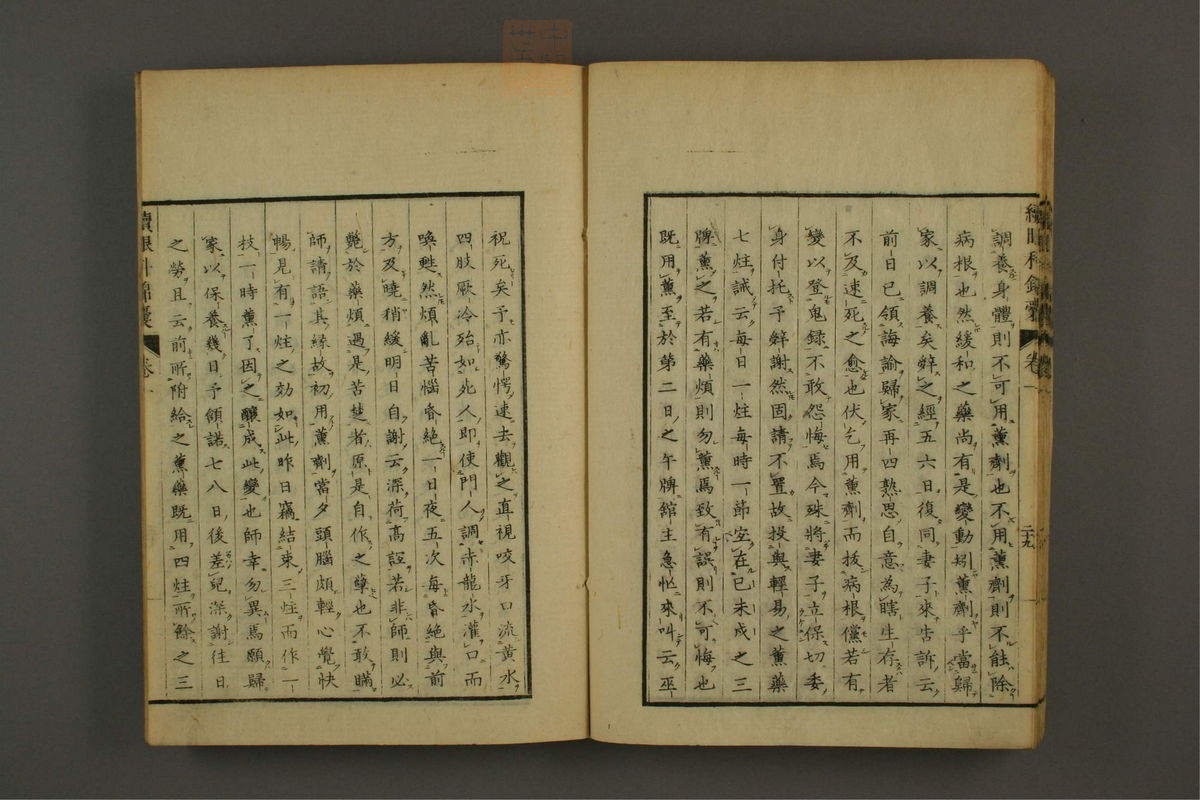 續眼科錦囊 卷一
二十九
調養身體則不可用薰劑也不用薰劑則不能除
病根也然緩和之藥尚有是變動矧薰劑乎當歸
家以調養矣辭之經五六日復同妻子來告訴云
前日已領誨諭歸家再四熟思自意為瞎生存者
不及速死之愈也伏乞用薰劑而拔病根儻若有
變以登鬼録不敢怨悔焉今殊將妻子立保切委
身付托予辭謝然固請不置故投與輕易之薰藥
七炷誡云每日一炷每時一節宜在巳未戌之三
牌薰之若有藥煩則勿薰焉致有誤則不可悔也
既用薰至於第二日之午牌舘主急忙來叫云巫
祝死矣予亦驚愕速去觀之直視咬牙口流黄水
四肢厥冷殆如死人即使門人調赤龍水灌口而
喚甦然煩亂苦惱昏絶一日夜五次每昏絶與前
方及曉稍緩明日自謝云深荷高誼若非師則必
斃於藥煩過是苦楚者原是自作之孽也不敢瞞
師請語其縁故初用薰劑當夕頭腦頗輕心覺快
暢見有一炷之効如此昨日竊結束三炷而作一
技一時薰了因之釀成此變也師幸勿異焉願歸
家以保養幾日予頷諾七八日後差皃深謝往日
之勞且云前所附給之薰藥既用四炷所餘之三
續眼科錦囊 卷一